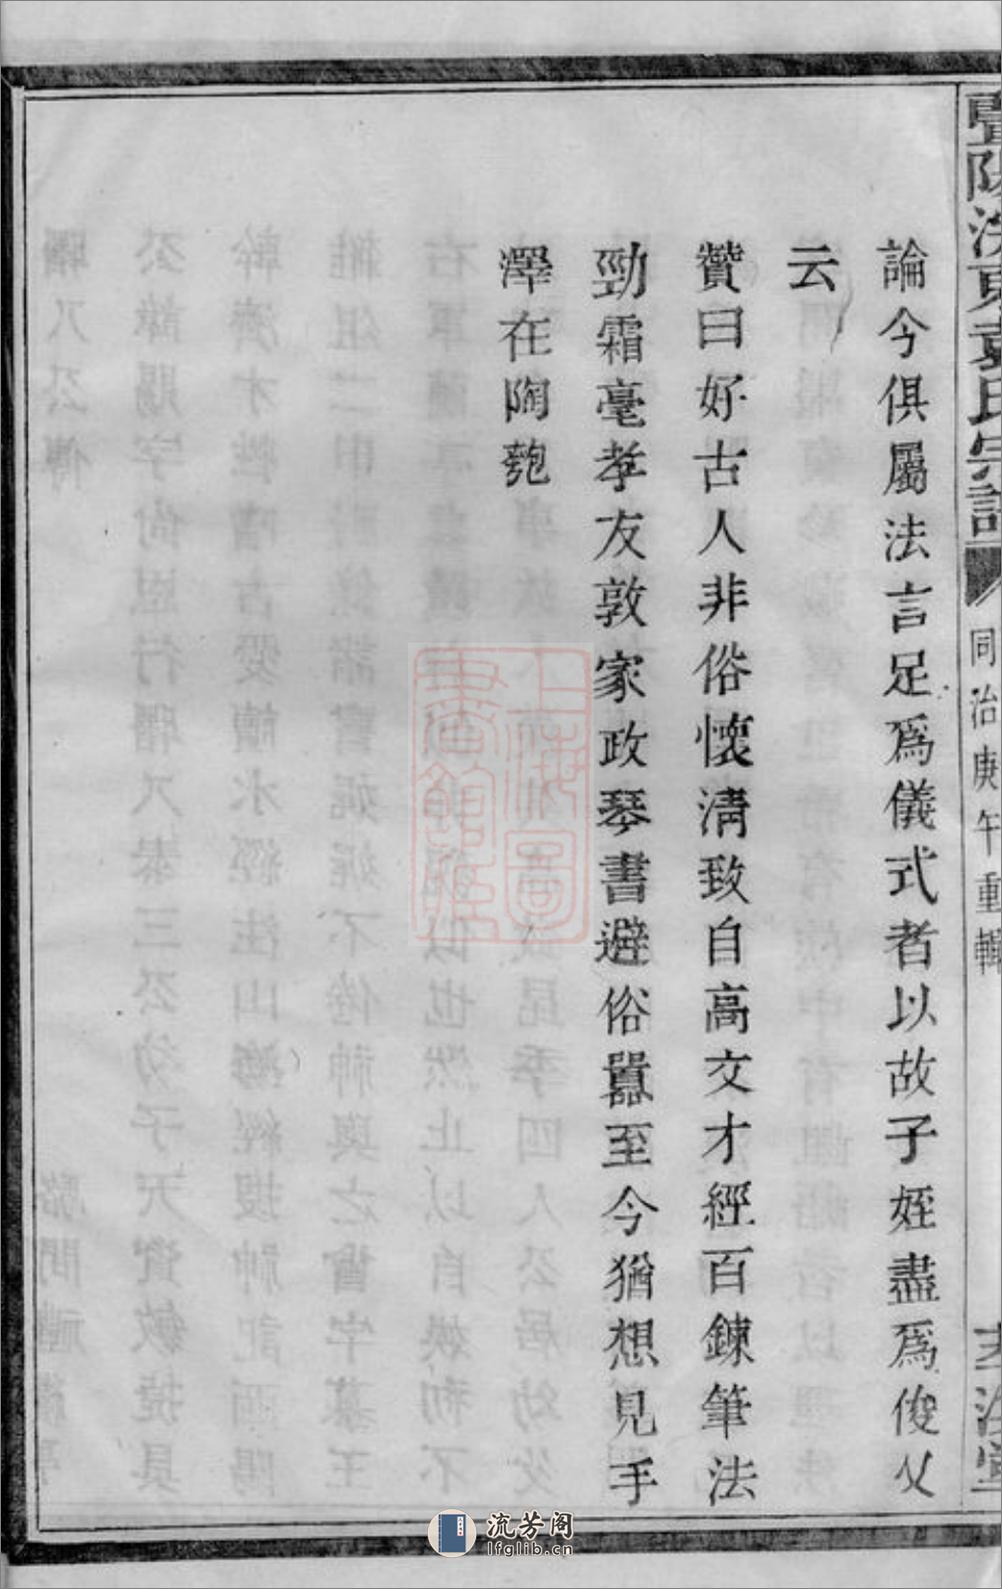 論今俱屬法言足爲儀式者以故子姪盡爲俊乂
云
贊曰好古人非俗懷淸致自高文才經百鍊筆法
勁霜毫孝友敦家政琴書避俗囂至今猶想見手
澤在陶匏
同治庚午重輯
上海圖書館藏
流芳阁
lfglib.cn